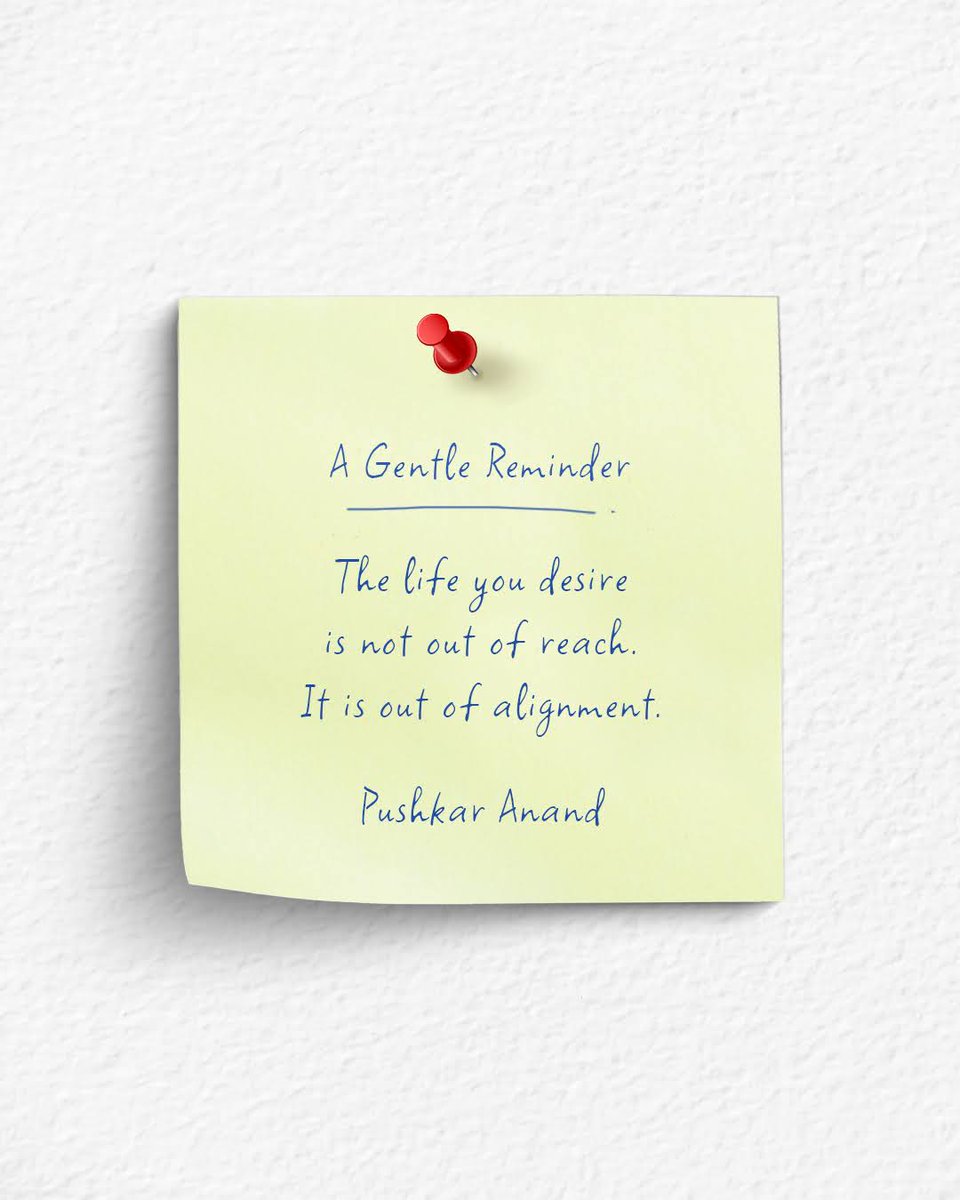 A Gentle Reminder
The life you desire
is not out of reach.
It is out of alignment.
Pushkar Anand